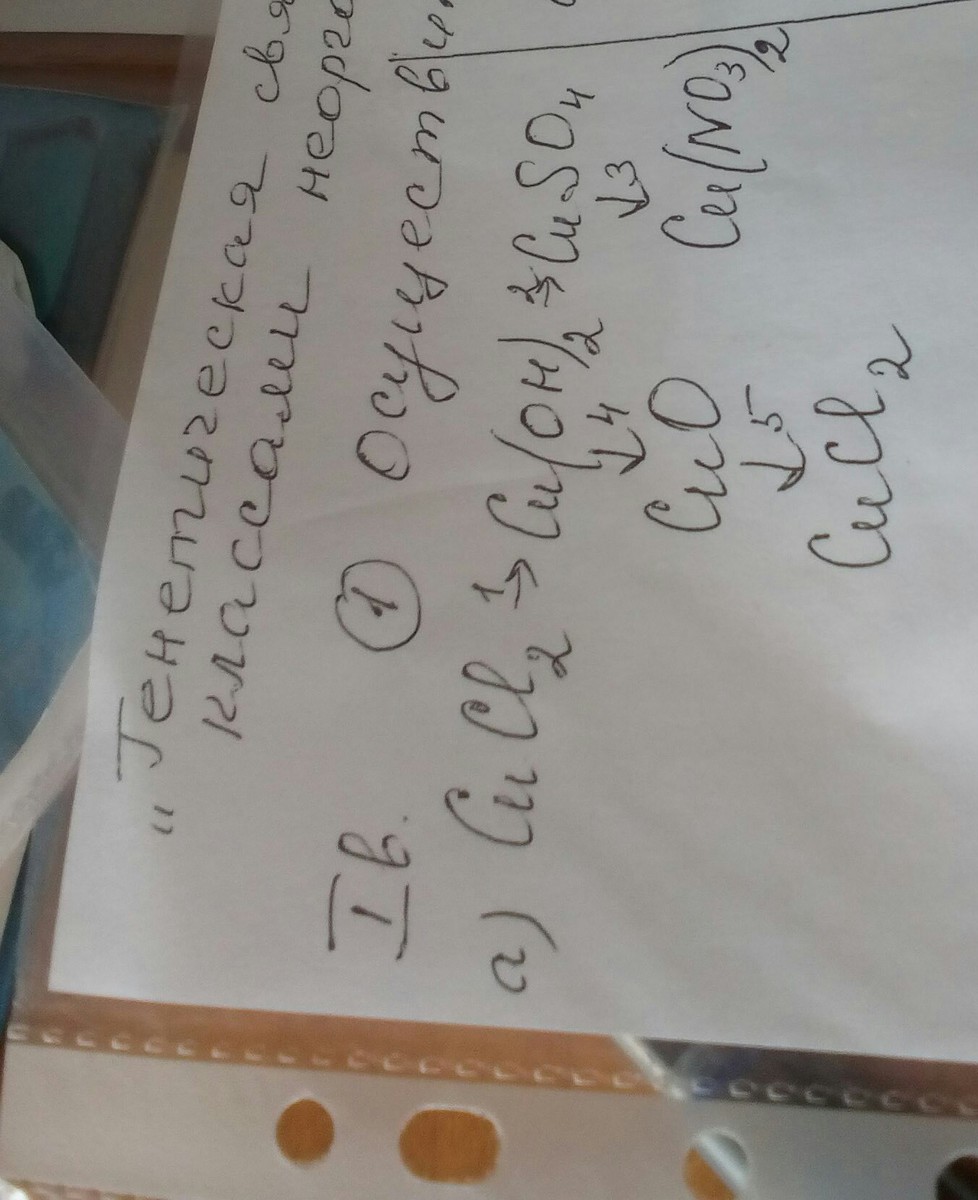 „Генетическая
классами
I в. ① Осуществи
а) CuCl₂ →¹ Cu(OH)₂ →² CuSO₄
↓4 ↓3
CuO Cu(NO₃)₂
↓5
CuCl₂